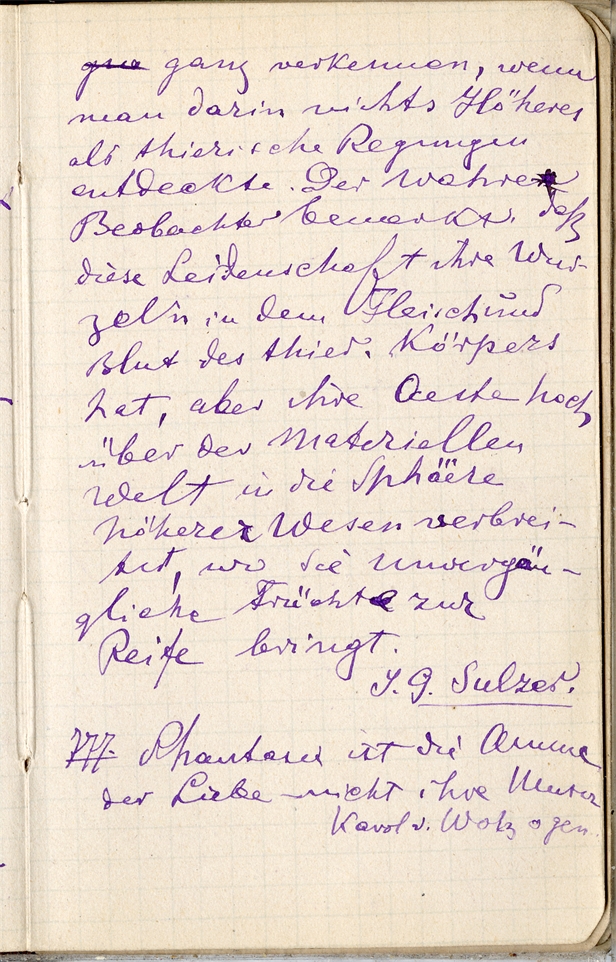 ganz verkennen, wenn
man darin nichts Höheres
als thierische Regungen
entdeckte. Der wahre
Beobachter bemerkt, daß
diese Leidenschaft ihre Wur-
zeln in dem Fleisch und
Blut des thier. Körpers
hat, aber ihre Aeste hoch
über der materiellen
Welt in die Sphäere
höherer Wesen verbrei-
tet, wo sie unvergän-
gliche Früchte zur
Reife bringt.
J. G. Sulzer.
777. Phantasie ist die Amme
der Liebe – nicht ihre Mutter
Karol v. Wolzogen